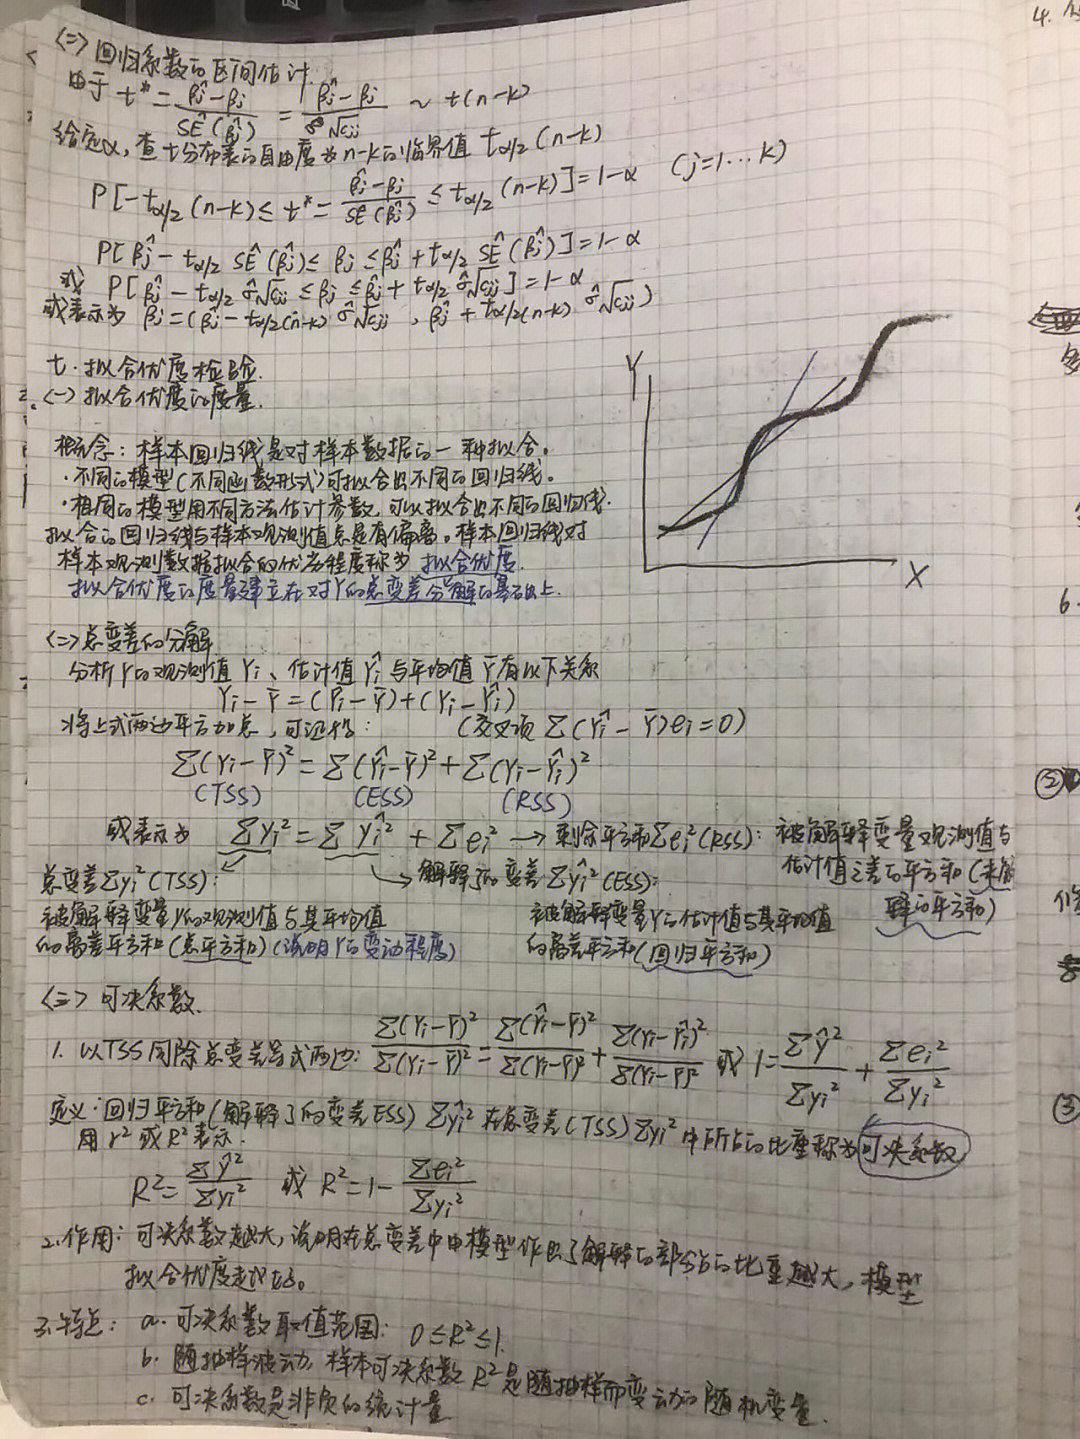 <二> 回归系数的区间估计.
由于 t* = (β̂j − βj)/SÊ(β̂j) = (β̂j − βj)/(σ̂√cjj) ~ t(n-k)
给定α, 查t分布表的自由度为n-k的临界值 tα/2 (n-k)
P[−tα/2 (n-k) ≤ t* = (β̂j − βj)/SÊ(β̂j) ≤ tα/2 (n-k)] = 1-α (j=1…k)
P[β̂j − tα/2 SÊ(β̂j) ≤ βj ≤ β̂j + tα/2 SÊ(β̂j)] = 1-α
或 P[β̂j − tα/2 σ̂√cjj ≤ βj ≤ β̂j + tα/2 σ̂√cjj] = 1-α
或表示为 βj = (β̂j − tα/2(n-k) σ̂√cjj , β̂j + tα/2(n-k) σ̂√cjj)
七. 拟合优度检验.
<一> 拟合优度的度量.
Y
X
概念: 样本回归线是对样本数据的一种拟合。
·不同的模型(不同函数形式)可拟合出不同的回归线。
·相同的模型用不同方法估计参数, 可以拟合出不同的回归线.
拟合的回归线与样本观测值总是有偏离。样本回归线对
样本观测数据拟合的优劣程度称为 拟合优度.
拟合优度的度量建立在对Y的总变差分解的基础上.
<二> 总变差的分解
分析Y的观测值 Yi、估计值 Ŷi 与平均值 Ȳ 有以下关系
Yi − Ȳ = (Ŷi − Ȳ) + (Yi − Ŷi)
将上式两边平方加总, 可证得: (交叉项 Σ(Ŷi − Ȳ)ei = 0)
Σ(Yi − Ȳ)² = Σ(Ŷi − Ȳ)² + Σ(Yi − Ŷi)²
(TSS) (ESS) (RSS)
或表示为 Σyi² = Σŷi² + Σei² → 剩余平方和Σei²(RSS): 被解释变量观测值与
估计值之差的平方和 (未解
释的平方和)
总变差Σyi²(TSS):
被解释变量Y的观测值与其平均值
的离差平方和 (总平方和) (说明Y的变动程度)
解释了的变差Σŷi²(ESS):
被解释变量Y的估计值与其平均值
的离差平方和 (回归平方和)
<三> 可决系数.
1. 以TSS同除总变差等式两边: Σ(Yi−Ȳ)²/Σ(Yi−Ȳ)² = Σ(Ŷi−Ȳ)²/Σ(Yi−Ȳ)² + Σ(Yi−Ŷi)²/Σ(Yi−Ȳ)² 或 1 = Σŷ²/Σyi² + Σei²/Σyi²
定义: 回归平方和 (解释了的变差ESS) Σŷi² 在总变差(TSS) Σyi² 中所占的比重称为可决系数
用 r² 或 R² 表示.
R² = Σŷ²/Σyi² 或 R² = 1 − Σei²/Σyi²
2. 作用: 可决系数越大, 说明在总变差中由模型作出了解释的部分占的比重越大, 模型
拟合优度越好。
3. 特点: a. 可决系数取值范围: 0 ≤ R² ≤ 1.
b. 随抽样波动, 样本可决系数 R² 是随抽样而变动的随机变量.
c. 可决系数是非负的统计量
4.
6.
②
③